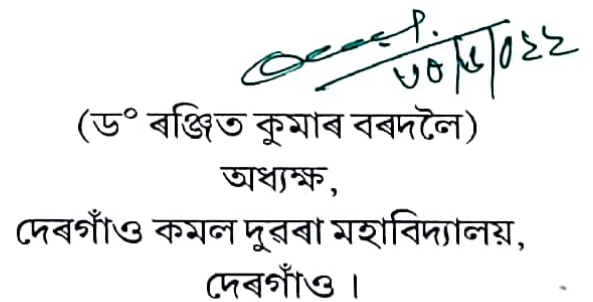 (ড° ৰঞ্জিত কুমাৰ বৰদলৈ)
অধ্যক্ষ,
দেৰগাঁও কমল দুৱৰা মহাবিদ্যালয়,
দেৰগাঁও ।